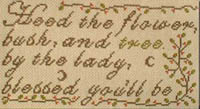 Heed the flower,
bush, and tree
by the lady,
blessed you'll be